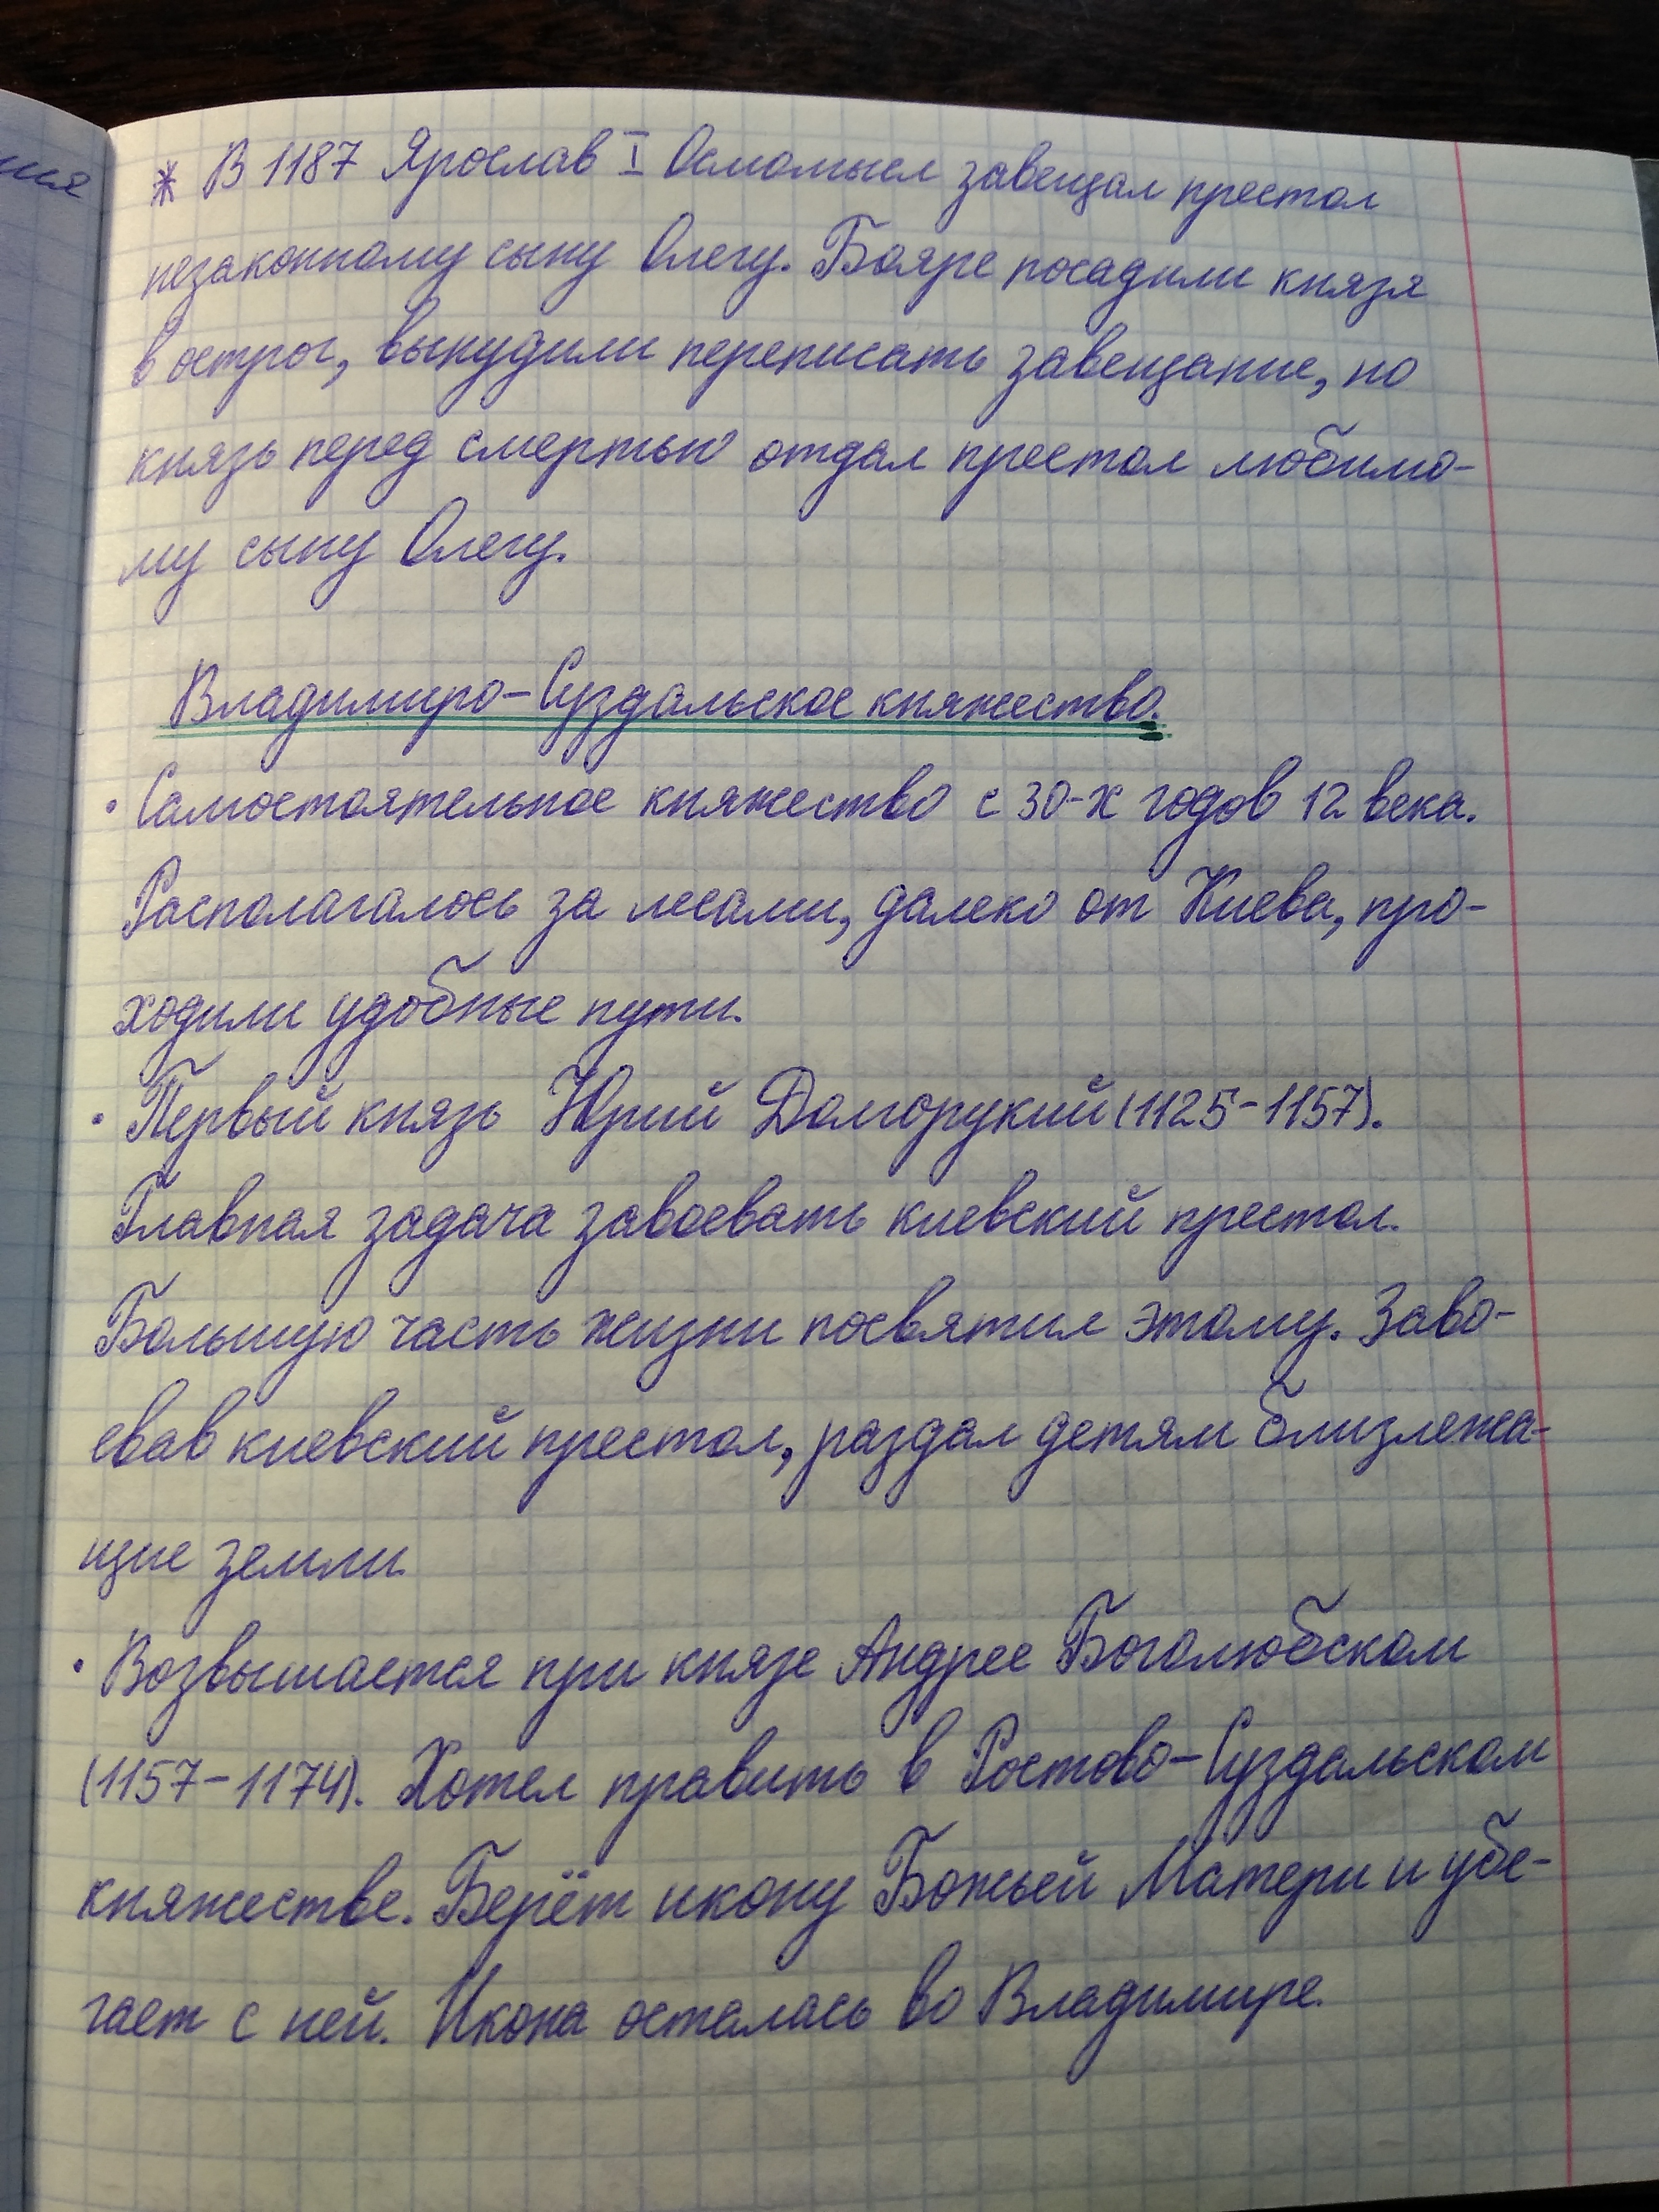 * В 1187 Ярослав I Осмомысл завещал престол
незаконному сыну Олегу. Бояре посадили князя
в острог, вынудили переписать завещание, но
князь перед смертью отдал престол любимо-
му сыну Олегу.
Владимиро-Суздальское княжество.
• Самостоятельное княжество с 30-х годов 12 века.
Располагалось за лесами, далеко от Киева, про-
ходили удобные пути.
• Первый князь Юрий Долгорукий (1125-1157).
Главная задача завоевать киевский престол.
Большую часть жизни посвятил этому. Заво-
евав киевский престол, раздал детям близлежа-
щие земли.
• Возвышается при князе Андрее Боголюбском
(1157-1174). Хотел править в Ростово-Суздальском
княжестве. Берёт икону Божьей Матери и убе-
гает с ней. Икона осталась во Владимире.